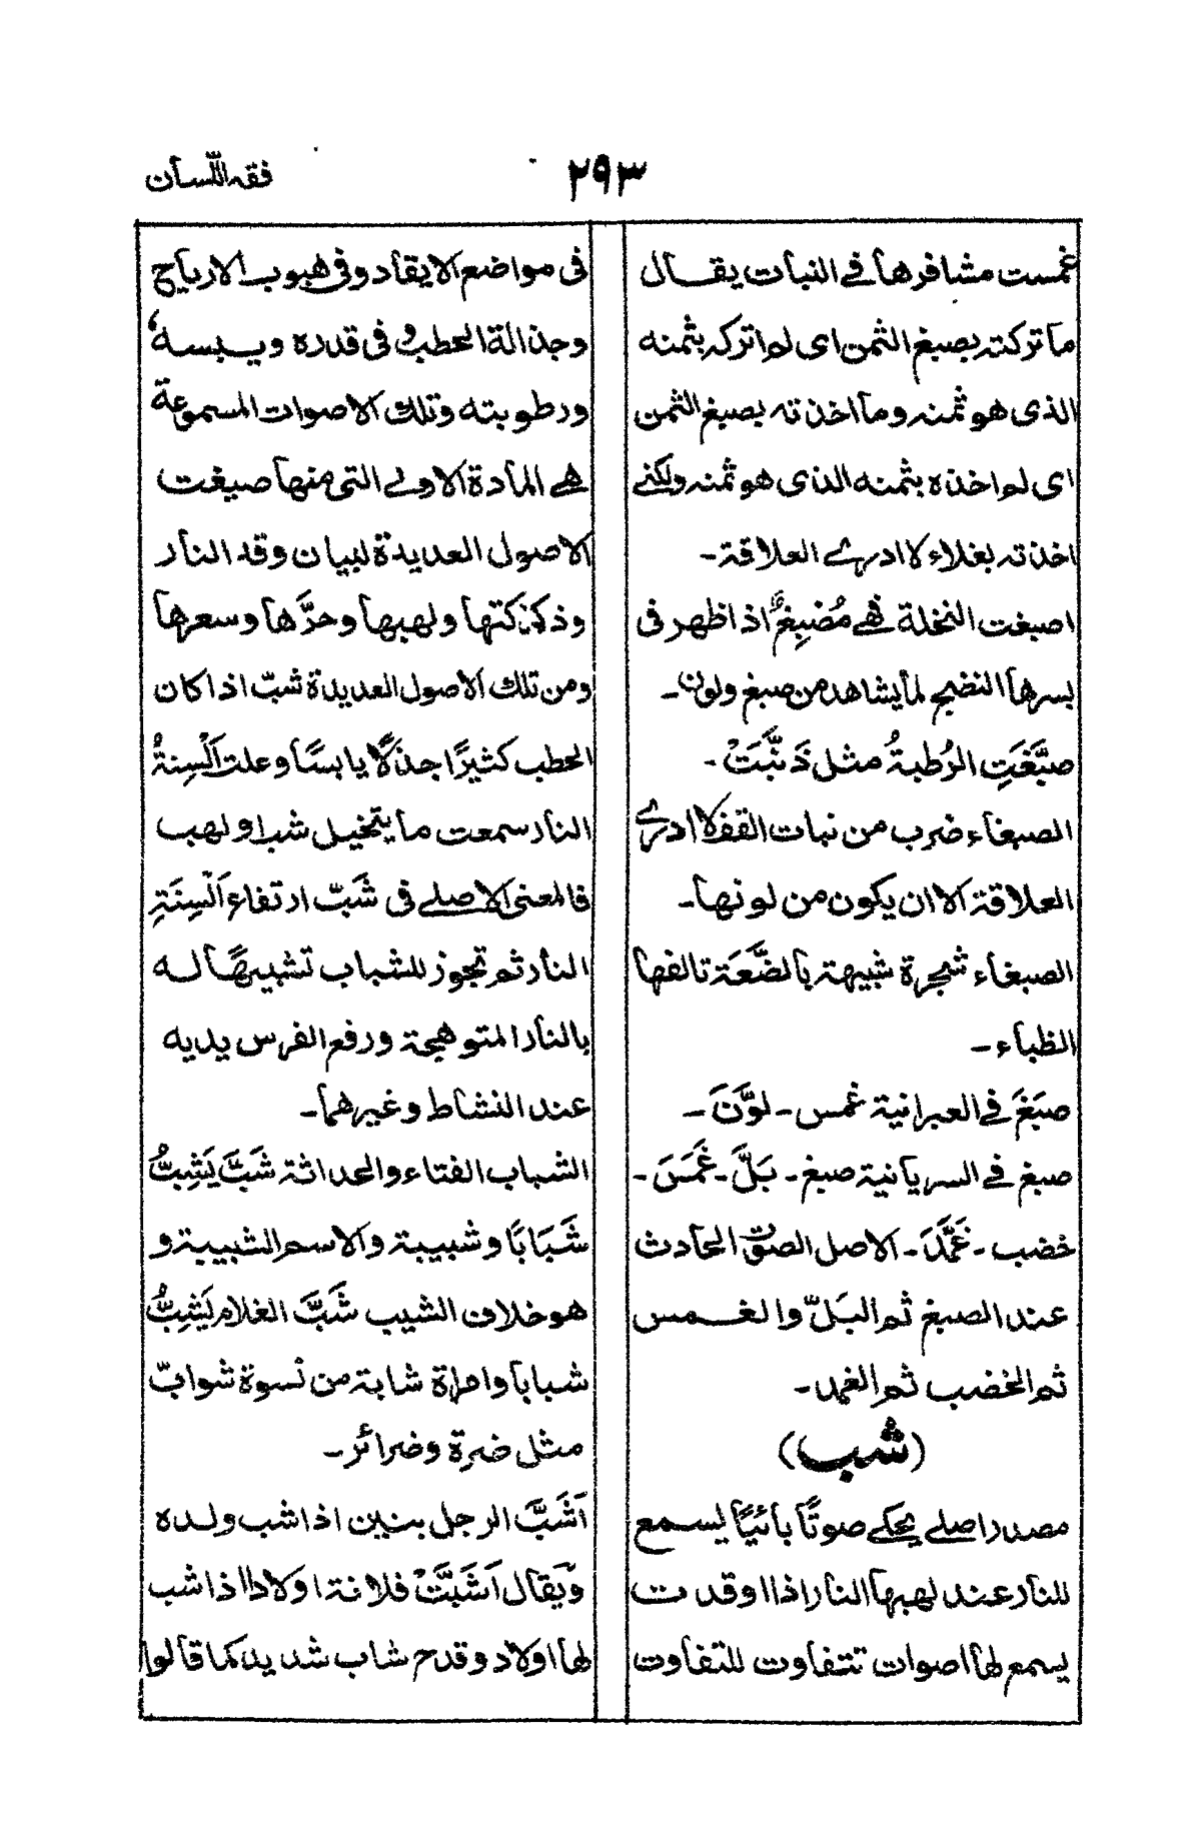 فقه اللّسان
٢٩٣
غمست مشافرها فے النبات يقال
ما تركته بصبغ الثمن اى لم اتركه بثمنه
الذى هو ثمنه وما اخذته بصبغ الثمن
اى لم اخذه بثمنه الذى هو ثمنه ولكنے
اخذته بغلاء لا ادرى العلاقة-
اصبغت النخلة فهے مُصْبِغٌ اذا ظهر فى
بسرها النضيج لما يشاهد من صبغ ولون-
صبَّغَتِ الرُطبةُ مثل ذَنَّبَتْ-
الصبغاء ضرب من نبات القف لا ادرى
العلاقة الا ان يكون من لونها-
الصبغاء شجرة شبيهة بالضَّعَة تالفها
الظباء-
صبَغَ فے العبرانية غمس- لوَّنَ-
صبغ فے السريانية صبغ- بَلَّ- غَمَسَ-
خضب- غَمَّدَ- الاصل الصوت الحادث
عند الصبغ ثم البَلّ والغمس
ثم الخضب ثم الغمد-
(شب)
مصدر اصلے يحكے صوتًا بائيًا يسمع
للنار عند لهبها النار اذا اوقدت
يسمع لها اصوات تتفاوت للتفاوت
فى مواضع الايقاد وفى هبوب الارياح
وجذالة الحطب وفى قدره ويبسه
ورطوبته وتلك الاصوات المسموعة
هے المادة الاولے التى منها صيغت
الاصول العديدة لبيان وقد النار
وذكذكتها ولهبها وحدَّها وسعرها
ومن تلك الاصول العديدة شبّ اذا كان
الحطب كثيرًا جذلًا يابسًا وعلت اَلْسِنةُ
النار سمعت ما يتخيل شب او لهب
فالمعنى الاصلے فى شَبّ ارتفاع اَلْسِنَةِ
النار ثم تجوز للشباب تشبيهًا له
بالنار المتوهجة ورفع الفرس يديه
عند النشاط وغيرهما-
الشباب الفتاء والحداثة شَبَّ يَشِبُّ
شَبَابًا وشبيبة والاسم الشبيبة و
هو خلاف الشيب شَبَّ الغلام يَشِبُّ
شبابا وامراة شابة من نسوة شوابّ
مثل ضرة وضرائر-
اَشَبَّ الرجل بنين اذا شب ولده
ويقال اَشَبَّتْ فلانة اولادا اذا شب
لها اولاد وقدح شاب شديد كما قالوا